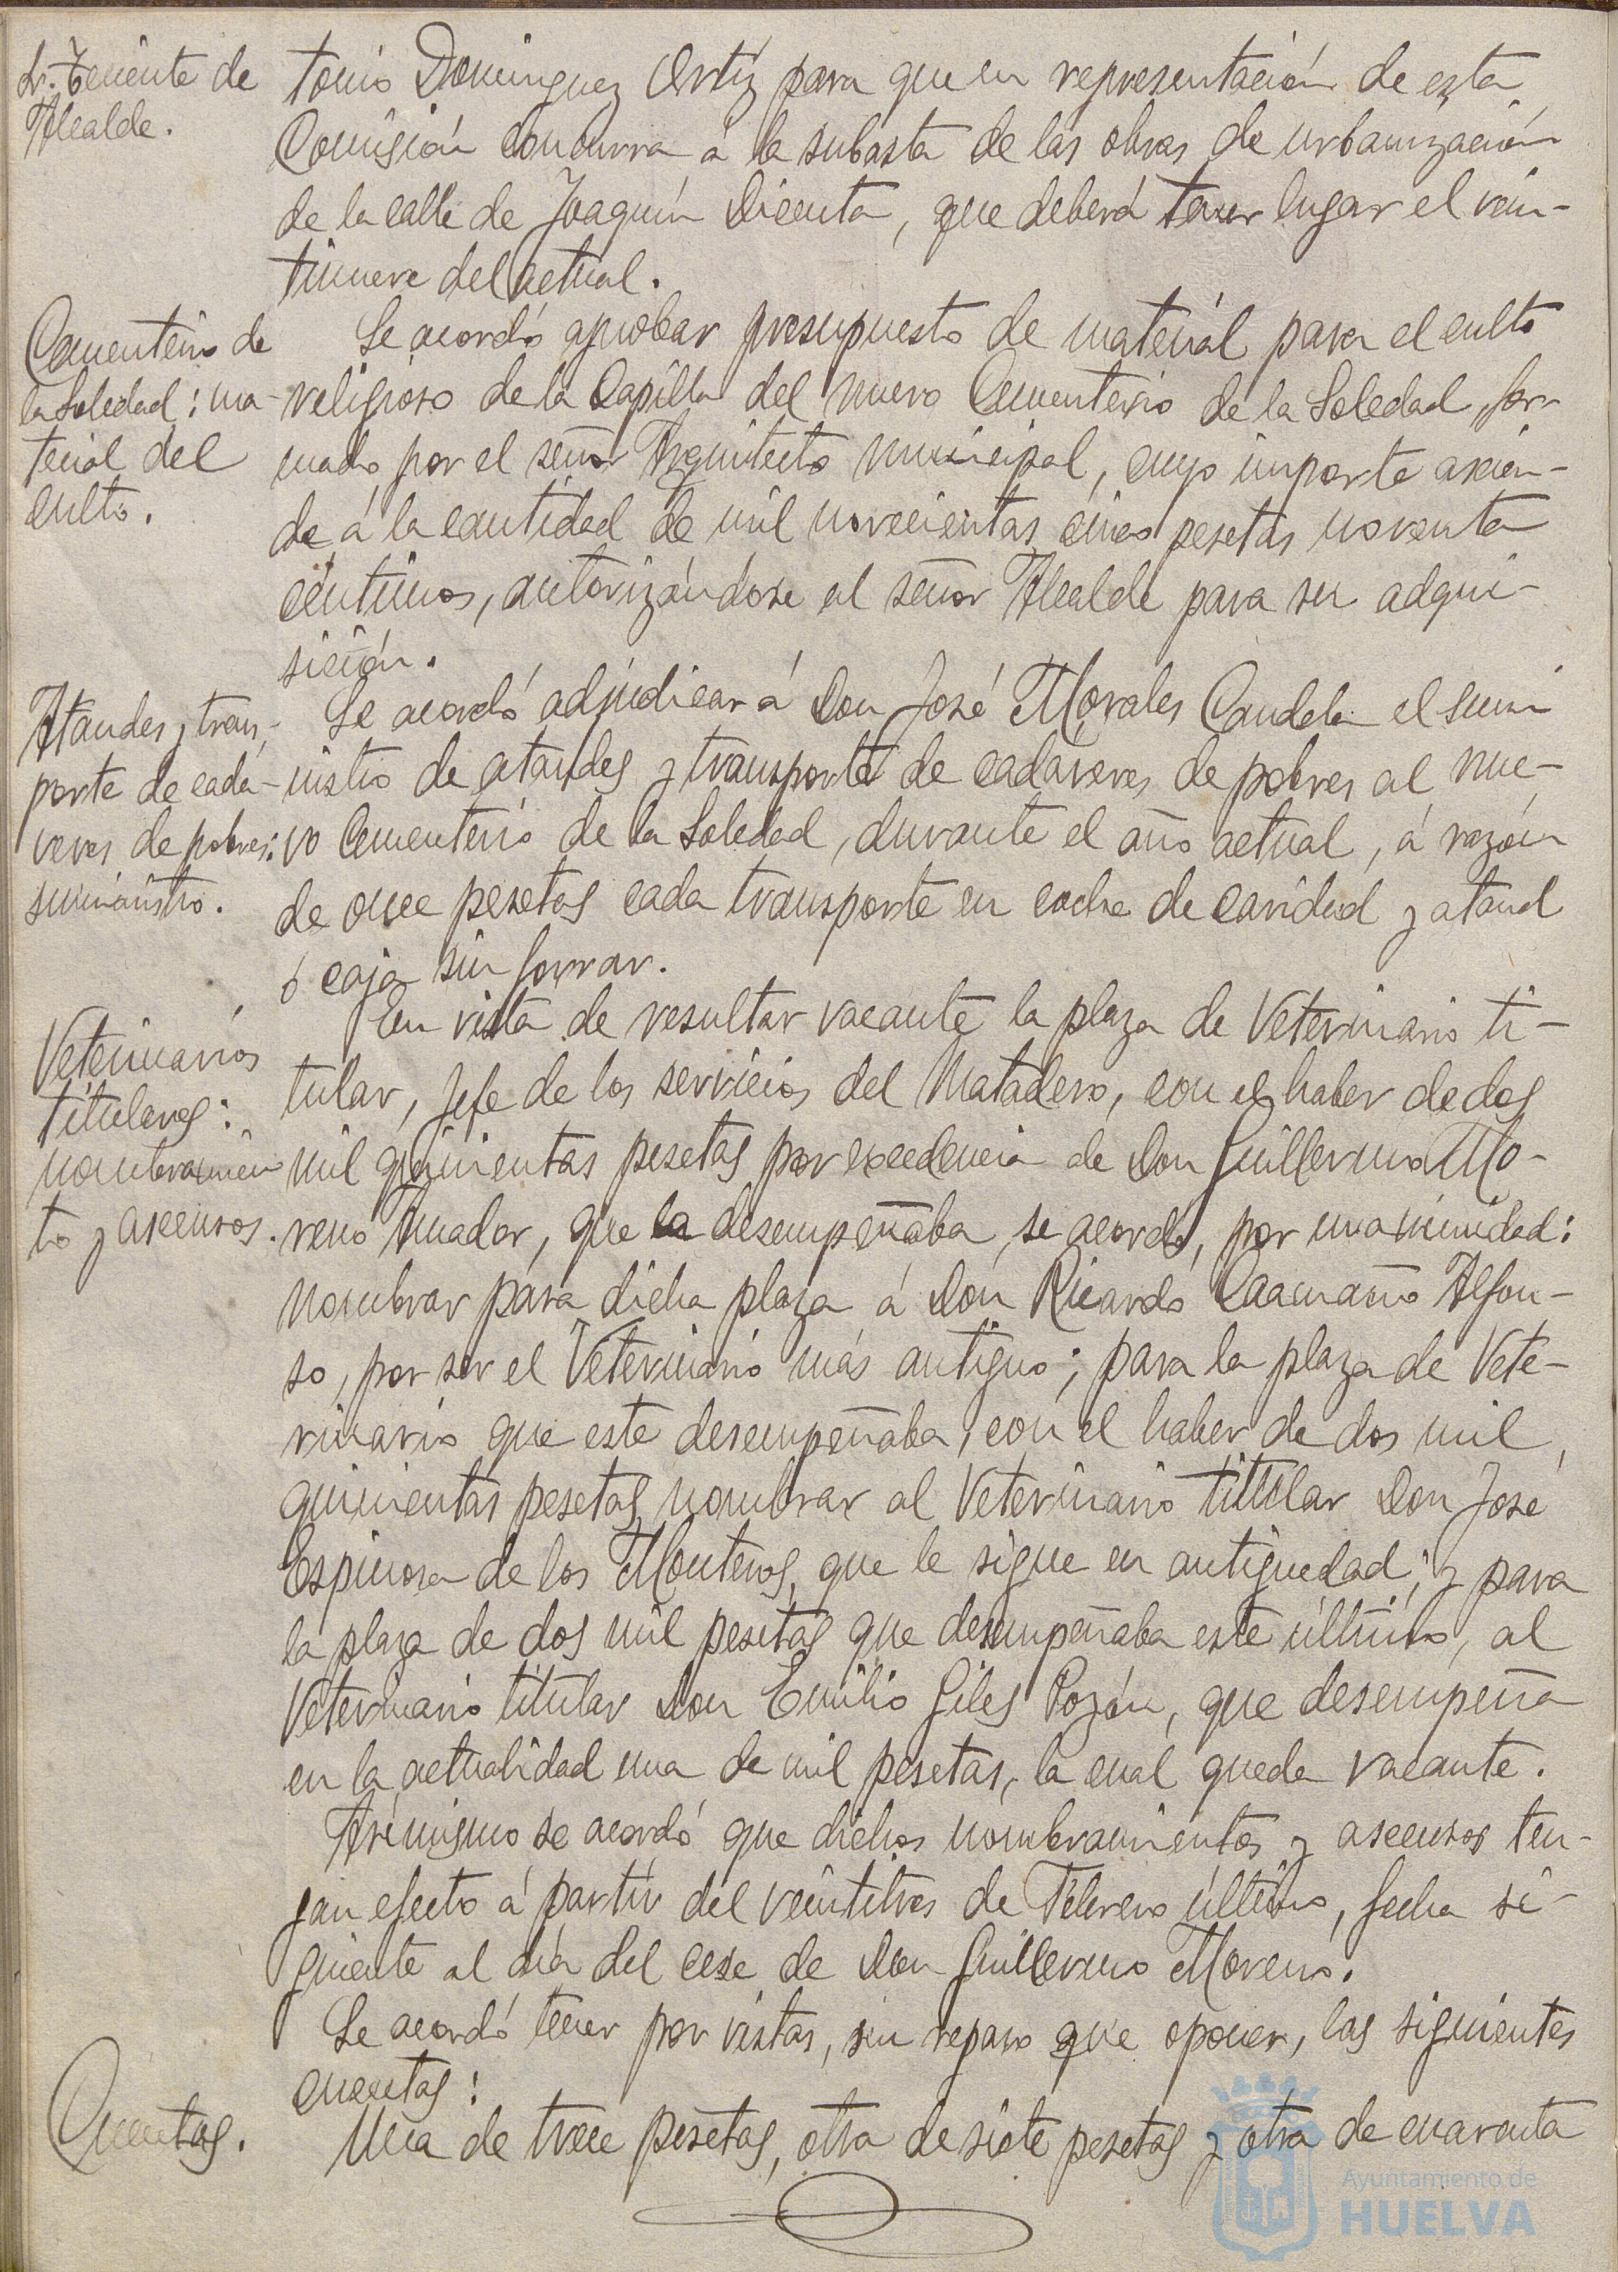 Sr. Teniente de
Alcalde.
tonio Dominguez Ortiz para que en representación de esta
Comisión concurra á la subasta de las obras de urbanización
de la calle de Joaquín Dicenta, que deberá tener lugar el vein-
tinueve del actual.
Cementerio de
la Soledad: ma-
terial del
culto.
Se acordó aprobar presupuesto de material para el culto
religioso de la Capilla del nuevo Cementerio de la Soledad, for-
mado por el señor Arquitecto municipal, cuyo importe ascien-
de á la cantidad de mil novecientas cinco pesetas noventa
céntimos, autorizándose al señor Alcalde para su adqui-
sición.
Ataudes y trans-
porte de cadá-
veres de pobres:
suministro.
Se acordó adjudicar á Don José Morales Candela el sumi
nistro de ataudes y transporte de cadáveres de pobres al nue-
vo Cementerio de la Soledad, durante el año actual, á razón
de once pesetas cada transporte en coche de caridad y ataud
ó caja sin forrar.
Veterinarios
titulares:
nombramien
to y ascensos.
En vista de resultar vacante la plaza de Veterinario ti-
tular, Jefe de los servicios del Matadero, con el haber de dos
mil quinientas pesetas por excedencia de Don Guillermo Mo-
reno Amador, que la desempeñaba, se acordó, por unanimidad:
nombrar para dicha plaza á Don Ricardo Caamaño Alfon-
so, por ser el Veterinario más antiguo; para la plaza de Vete-
rinario que este desempeñaba, con el haber de dos mil
quinientas pesetas, nombrar al Veterinario titular Don José
Espinosa de los Monteros, que le sigue en antiguedad; y para
la plaza de dos mil pesetas que desempeñaba este último, al
Veterinario titular Don Emilio Giles Pozón, que desempeña
en la actualidad una de mil pesetas, la cual queda vacante.
Asímismo se acordó que dichos nombramientos y ascensos ten-
gan efecto á partir del veintitres de Febrero último, fecha si-
guiente al día del cese de Don Guillermo Moreno.
Se acordó tener por vistas, sin reparo que oponer, las siguientes
cuentas:
Cuentas.
Una de trece pesetas, otra de siete pesetas y otra de cuarenta
Ayuntamiento de
HUELVA